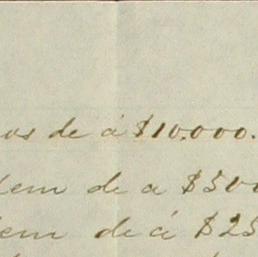 os de á $10.000.
dem de a $500
dem de á $25